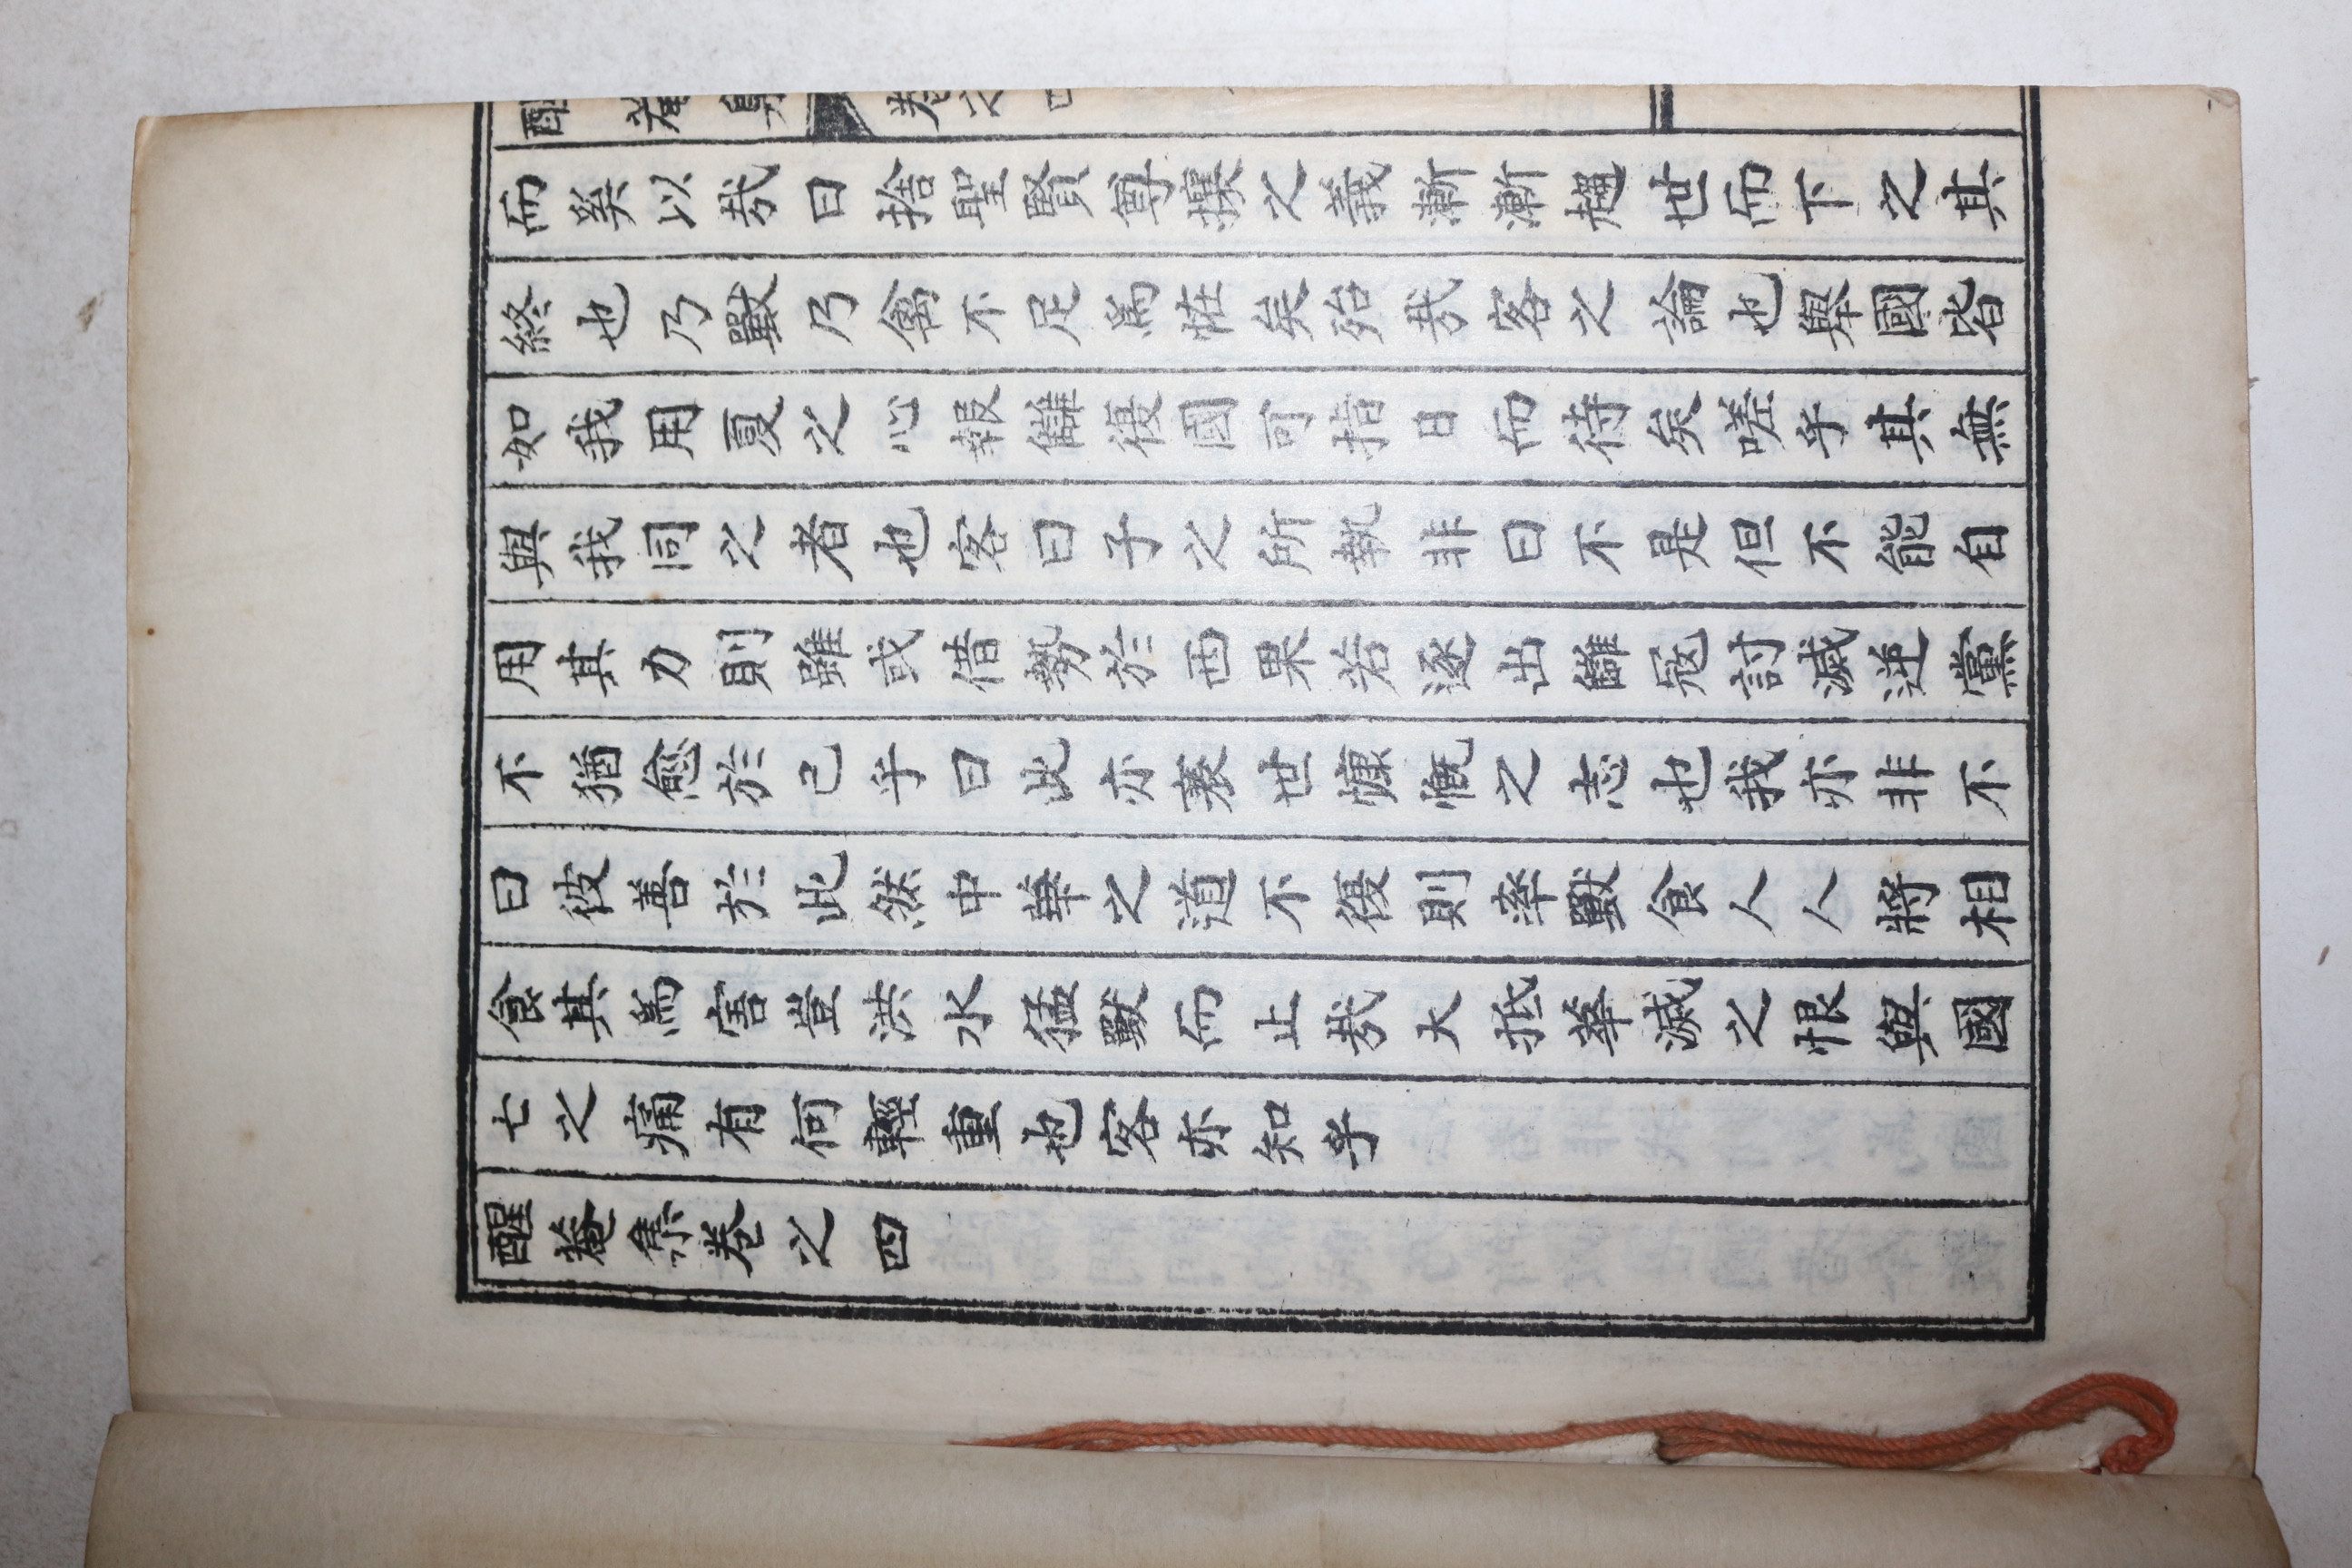 醒菴集 卷之四
而奚以哉曰捨聖賢尊攘之義漸漸趨世而下之其
終也乃獸乃禽不足爲怪矣殆哉客之論也擧國皆
如我用夏之心報讎復國可指日而待矣嗟乎其無
與我同之者也客曰子之所執非曰不是但不能自
用其力則雖或借勢於西果若逐出讎寇討滅逆黨
不猶愈於己乎曰此亦衰世慷慨之志也我亦非不
曰彼善於此然中華之道不復則率獸食人人將相
食其爲害豈洪水猛獸而止哉大抵華滅之恨與國
亡之痛有何輕重也客亦知乎
醒菴集卷之四